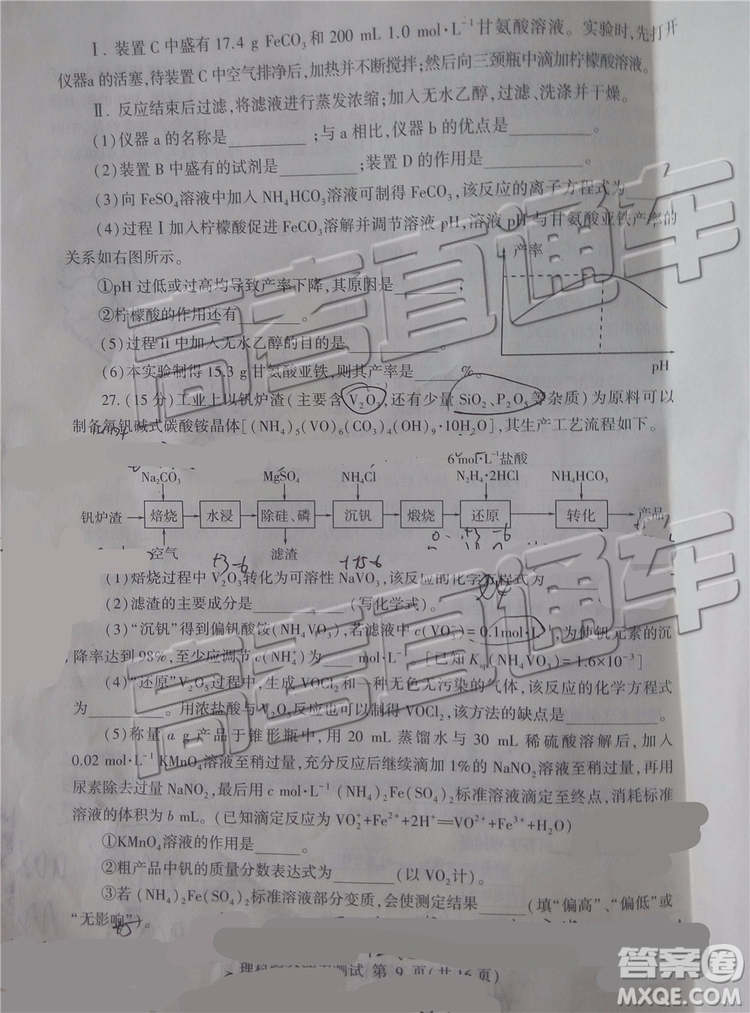 Ⅰ. 装置 C 中盛有 17.4 g FeCO₃和 200 mL 1.0 mol·L⁻¹甘氨酸溶液。实验时,先打开
仪器a 的活塞,待装置 C 中空气排净后,加热并不断搅拌;然后向三颈瓶中滴加柠檬酸溶液。
Ⅱ. 反应结束后过滤,将滤液进行蒸发浓缩;加入无水乙醇,过滤、洗涤并干燥。
(1)仪器 a 的名称是________ ;与 a 相比,仪器 b 的优点是________。
(2)装置 B 中盛有的试剂是________;装置 D 的作用是________。
(3)向 FeSO₄溶液中加入 NH₄HCO₃溶液可制得 FeCO₃,该反应的离子方程式为
(4)过程Ⅰ加入柠檬酸促进 FeCO₃溶解并调节溶液 pH,溶液 pH 与甘氨酸亚铁产率的
关系如右图所示。
产率
①pH 过低或过高均导致产率下降,其原因是________;
②柠檬酸的作用还有________。
(5)过程 ii 中加入无水乙醇的目的是________。
(6)本实验制得 15.3 g 甘氨酸亚铁,则其产率是________%。
pH
27.(15 分)工业上以钒炉渣(主要含 V₂O₃,还有少量 SiO₂、P₂O₅等杂质)为原料可以
制备氧钒碱式碳酸铵晶体[(NH₄)₅(VO)₆(CO₃)₄(OH)₉·10H₂O],其生产工艺流程如下。
6 mol·L⁻¹盐酸
Na₂CO₃ MgSO₄ NH₄Cl N₂H₄·2HCl NH₄HCO₃
钒炉渣 焙烧 水浸 除硅、磷 沉钒 煅烧 还原 转化 产品
空气 滤渣
+3 -6
(1)焙烧过程中 V₂O₃转化为可溶性 NaVO₃,该反应的化学方程式为________
(2)滤渣的主要成分是________(写化学式)。
(3)“沉钒”得到偏钒酸铵(NH₄VO₃),若滤液中 c(VO₃⁻)=0.1mol·L⁻¹,为使钒元素的沉
降率达到 98%,至少应调节 c(NH₄⁺)为____mol·L⁻¹。[已知 Kₛₚ(NH₄VO₃)=1.6×10⁻³]
(4)“还原”V₂O₅过程中,生成 VOCl₂和一种无色无污染的气体,该反应的化学方程式
为________。用浓盐酸与 V₂O₅反应也可以制得 VOCl₂,该方法的缺点是________。
(5)称量 a g 产品于锥形瓶中,用 20 mL 蒸馏水与 30 mL 稀硫酸溶解后,加入
0.02 mol·L⁻¹ KMnO₄溶液至稍过量,充分反应后继续滴加 1%的 NaNO₂溶液至稍过量,再用
尿素除去过量 NaNO₂,最后用 c mol·L⁻¹ (NH₄)₂Fe(SO₄)₂标准溶液滴定至终点,消耗标准
溶液的体积为 b mL。(已知滴定反应为 VO₂⁺+Fe²⁺+2H⁺=VO²⁺+Fe³⁺+H₂O)
①KMnO₄溶液的作用是________。
②粗产品中钒的质量分数表达式为________(以 VO₂计)。
③若 (NH₄)₂Fe(SO₄)₂标准溶液部分变质,会使测定结果________(填“偏高”、“偏低”或
“无影响”)。
测试 第 9 页(共 16 页)
高考直通车
高考直通车
答案圈
MXQE.COM